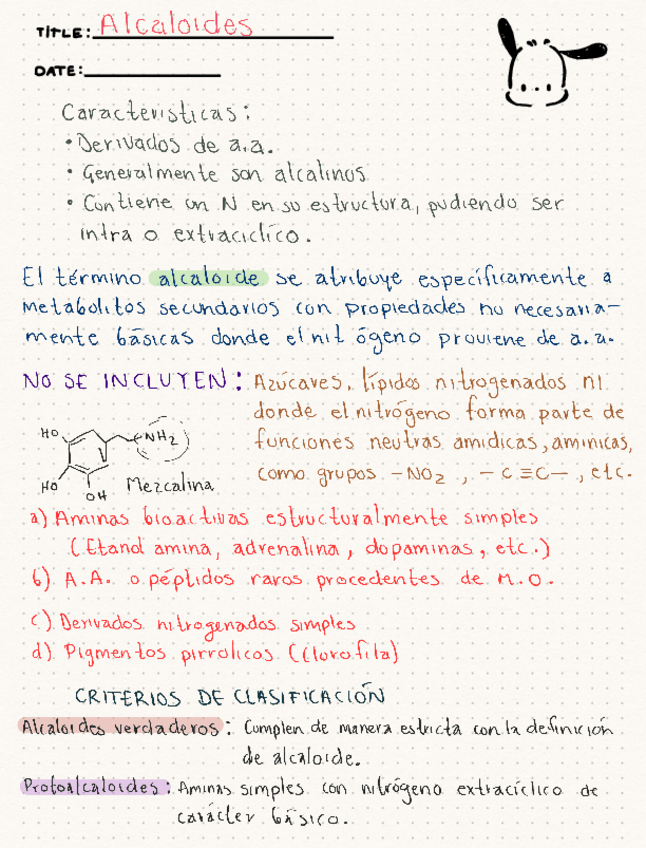 TITLE: Alcaloides
DATE:
Características:
• Derivados de a.a.
• Generalmente son alcalinos
• Contiene un N en su estructura, pudiendo ser
intra o extracíclico.
El término alcaloide se atribuye específicamente a
metabolitos secundarios con propiedades no necesaria-
mente básicas donde el nit ógeno proviene de a.a.
NO SE INCLUYEN: Azúcaves, lípidos nitrogenados ni
donde el nitrógeno forma parte de
funciones neutras amídicas, amínicas,
como grupos -NO2, -C≡C-, etc.
HO
NH2
HO
OH
Mezcalina
a) Aminas bioactivas estructuralmente simples
(Etanol amina, adrenalina, dopaminas, etc.)
b) A.A. o péptidos raros procedentes de M.O.
c) Derivados nitrogenados simples
d) Pigmentos pirrólicos (Clorofila)
CRITERIOS DE CLASIFICACIÓN
Alcaloides verdaderos: Cumplen de manera estricta con la definición
de alcaloide.
Protoalcaloides: Aminas simples con nitrógeno extracíclico de
carácter básico.